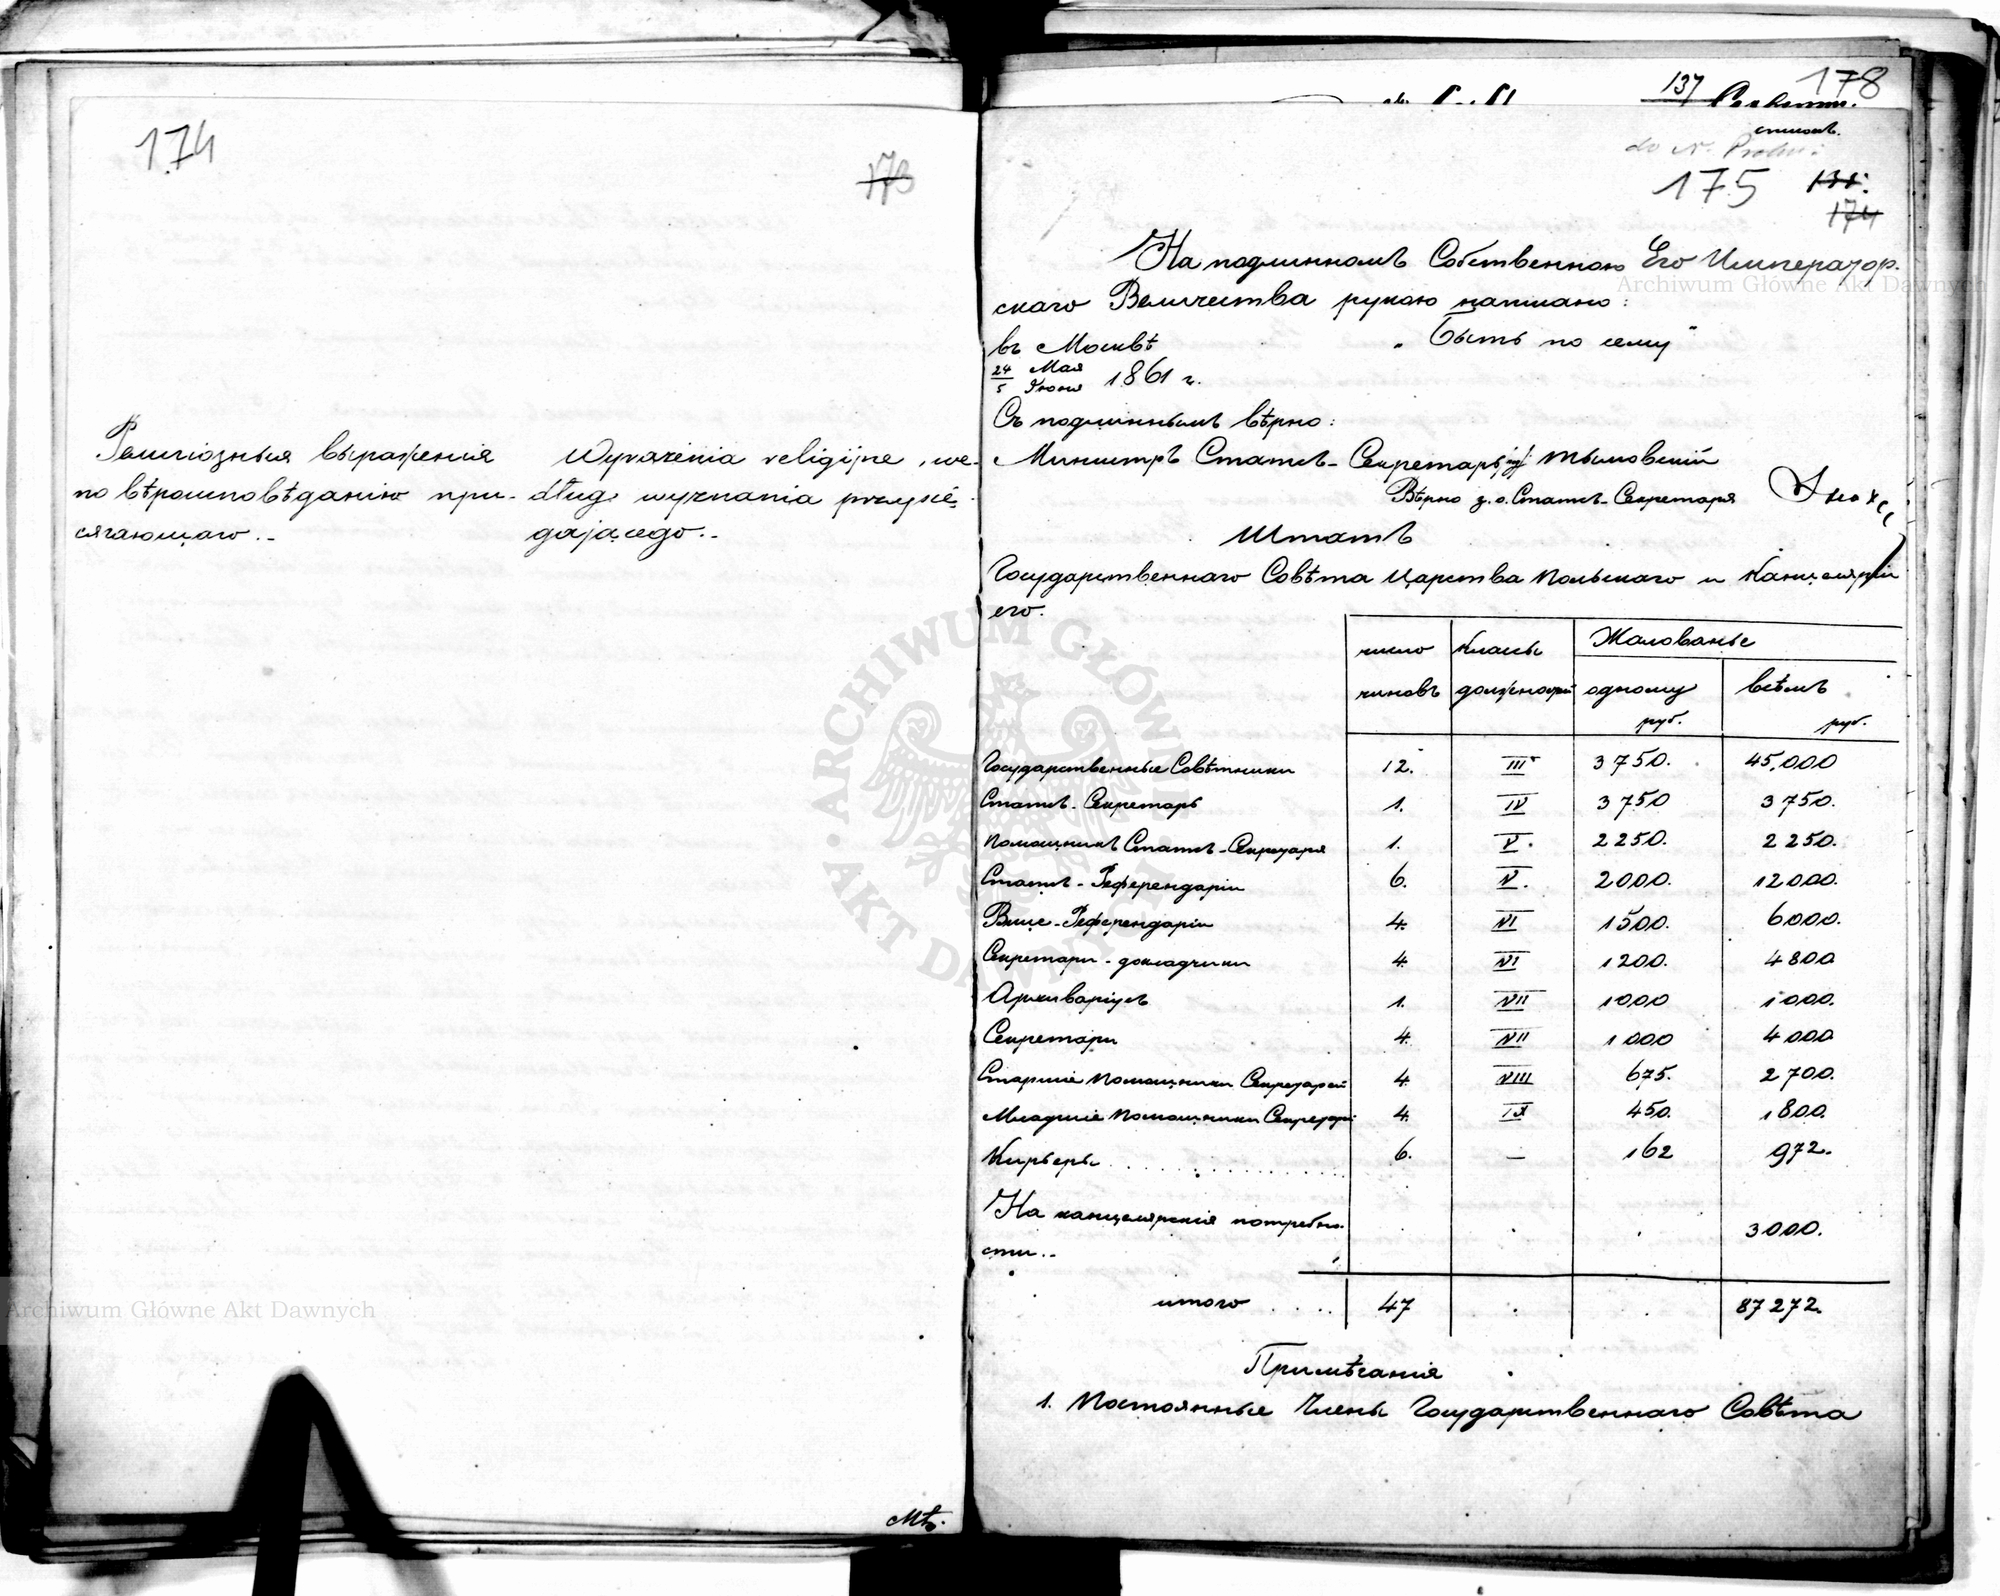 174
173
Религіозныя выраженія
по вѣроисповѣданію при-
сягающаго.-
Wyrażenia religijne, we-
dług wyznania przysię-
gającego.-
Мѣ.
178
137
списокъ.
do N.
175
174
На подлинномъ Собственною Его Император-
скаго Величества рукою написано:
въ Москвѣ „Быть по сему“
24/5 Мая/Іюня 1861 г.
Съ подлиннымъ вѣрно:
Министръ Статсъ-Секретарь Тымовскій
Вѣрно з. о. Статсъ-Секретаря
Штатъ
Государственнаго Совѣта Царства Польскаго и Канцеляріи
его.
число чиновъ Классъ должностей Жалованье
одному руб. всѣмъ руб.
Государственные Совѣтники 12. III 3750. 45,000
Статсъ-Секретарь 1. IV 3750 3750.
Помощникъ Статсъ-Секретаря 1. V. 2250. 2250.
Статсъ-Референдаріи 6. V. 2000. 12000.
Вице-Референдаріи 4. VI 1500. 6000.
Секретари-докладчики 4. VI 1200. 4800
Архиваріусъ 1. VII 1000 1000.
Секретари 4. VII 1000 4000
Старшіе Помощники Секретарей 4. VIII 675. 2700.
Младшіе Помощники Секретарей 4. IX 450. 1800.
Курьеры 6. — 162 972.
На канцелярскія потребно-
сти.- 3000.
итого .... 47 87272.
Примѣчанія
1. Постоянные Члены Государственнаго Совѣта
Archiwum Główne Akt Dawnych
Archiwum Główne Akt Dawnych
ARCHIWUM GŁÓWNE AKT DAWNYCH